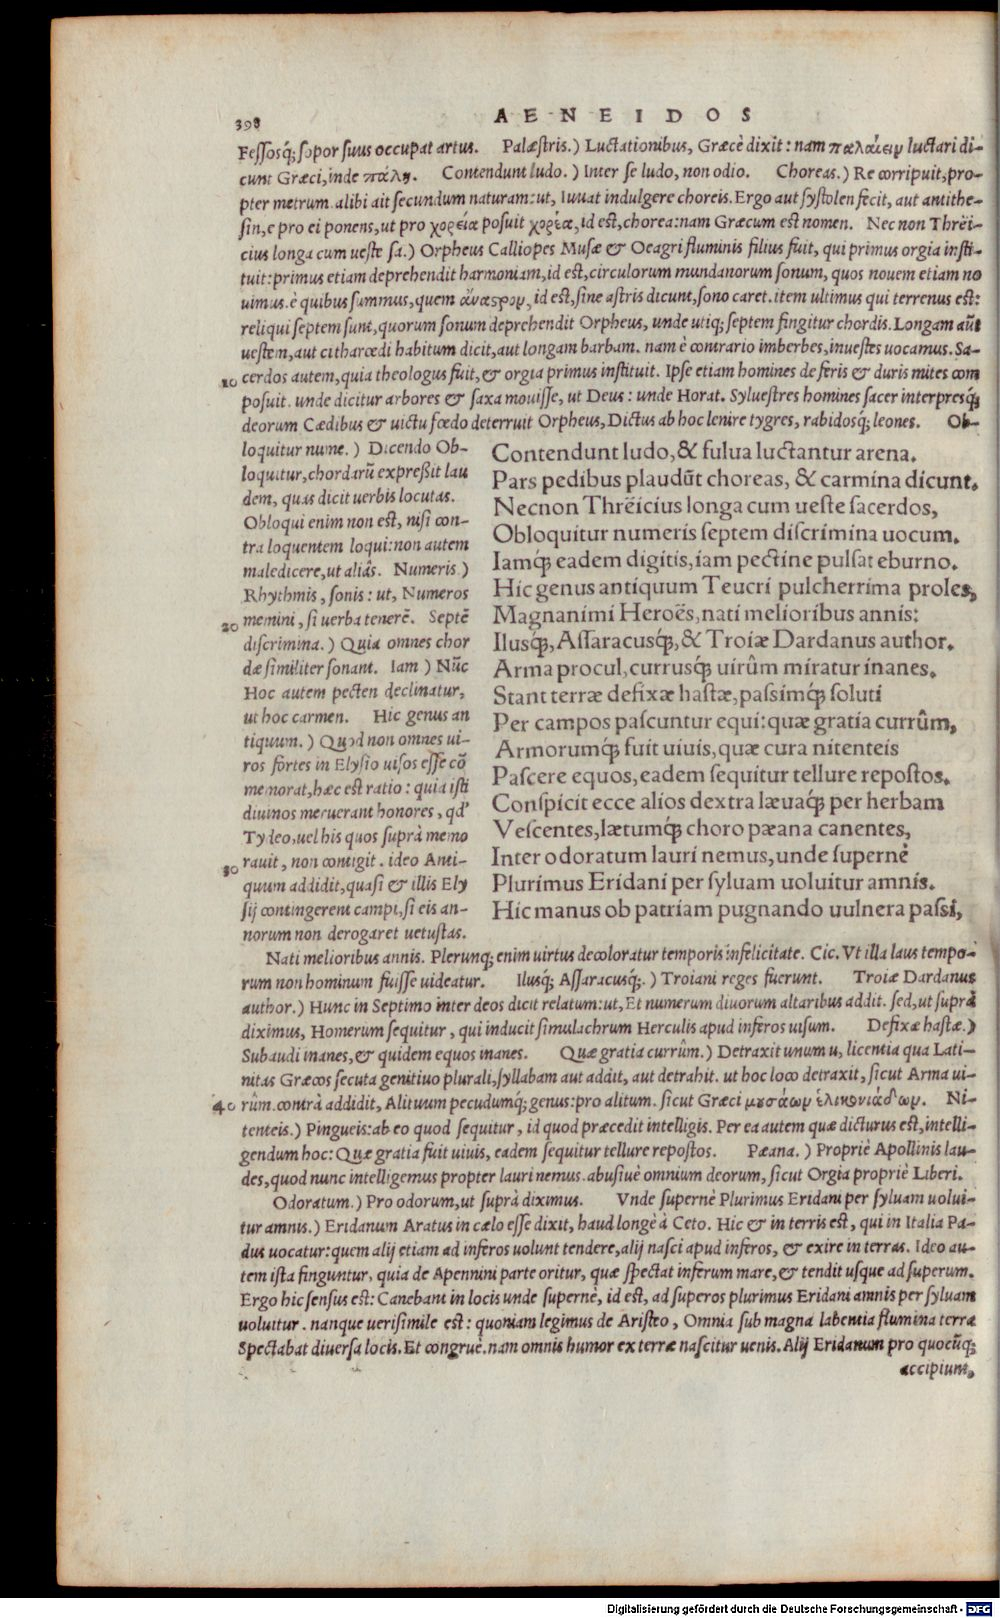 398
AENEIDOS
Fessosq́; sopor suus occupat artus. Palæstris.) Luctationibus, Græcè dixit: nam παλαίειν luctari di-
cunt Græci, inde πάλη. Contendunt ludo.) Inter se ludo, non odio. Choreas.) Re corripuit, pro-
pter metrum. alibi ait secundum naturam: ut, Iuuat indulgere choreis. Ergo aut systolen fecit, aut antithe-
sin, e pro ei ponens, ut pro χορεία posuit χορέα, id est, chorea: nam Græcum est nomen. Nec non Threi-
cius longa cum ueste sa.) Orpheus Calliopes Musæ & Oeagri fluminis filius fuit, qui primus orgia insti-
tuit: primus etiam deprehendit harmoniam, id est, circulorum mundanorum sonum, quos nouem etiam no
uimus. è quibus summus, quem ἄναστρον, id est, sine astris dicunt, sono caret. item ultimus qui terrenus est:
reliqui septem sunt, quorum sonum deprehendit Orpheus, unde utiq; septem fingitur chordis. Longam aūt
uestem, aut citharœdi habitum dicit, aut longam barbam. nam è contrario imberbes, inuestes uocamus. Sa-
10 cerdos autem, quia theologus fuit, & orgia primus instituit. Ipse etiam homines de feris & duris mites com
posuit. unde dicitur arbores & saxa mouisse, ut Deus: unde Horat. Syluestres homines sacer interpresq́;
deorum Cædibus & uictu fœdo deterruit Orpheus, Dictus ab hoc lenire tygres, rabidosq́; leones. Ob-
loquitur nume.) Dicendo Ob-
loquitur, chordarū expreßit lau
dem, quas dicit uerbis locutas.
Obloqui enim non est, nisi con-
tra loquentem loqui: non autem
maledicere, ut aliâs. Numeris.)
Rhythmis, sonis: ut, Numeros
20 memini, si uerba tenerē. Septē
discrimina.) Quia omnes chor
dæ similiter sonant. Iam) Nūc
Hoc autem pecten declinatur,
ut hoc carmen. Hic genus an
tiquum.) Quod non omnes ui-
ros fortes in Elysio uisos esse cō
memorat, hæc est ratio: quia isti
diuinos meruerant honores, qd'
Tydeo, uel his quos suprà memo
30 rauit, non contigit. ideo Anti-
quum addidit, quasi & illis Ely
sij contingerent campi, si eis an-
norum non derogaret uetustas.
Contendunt ludo, & fulua luctantur arena.
Pars pedibus plaudūt choreas, & carmina dicunt.
Necnon Threïcius longa cum ueste sacerdos,
Obloquitur numeris septem discrimina uocum.
Iamq́; eadem digitis, iam pectine pulsat eburno.
Hic genus antiquum Teucri pulcherrima proles,
Magnanimi Heroës, nati melioribus annis:
Ilusq́;, Assaracusq́;, & Troiæ Dardanus author.
Arma procul, currusq́; uirûm miratur inanes.
Stant terræ defixæ hastæ, passimq́; soluti
Per campos pascuntur equi: quæ gratia currûm,
Armorumq́; fuit uiuis, quæ cura nitenteis
Pascere equos, eadem sequitur tellure repostos.
Conspicit ecce alios dextra læuaq́; per herbam
Vescentes, lætumq́; choro pæana canentes,
Inter odoratum lauri nemus, unde supernè
Plurimus Eridani per syluam uoluitur amnis.
Hic manus ob patriam pugnando uulnera passi,
Nati melioribus annis. Plerunq; enim uirtus decoloratur temporis infelicitate. Cic. Vt illa laus tempo-
rum non hominum fuisse uideatur. Ilusq́; Assaracusq́;.) Troiani reges fuerunt. Troiæ Dardanus
author.) Hunc in Septimo inter deos dicit relatum: ut, Et numerum diuorum altaribus addit. sed, ut suprà
diximus, Homerum sequitur, qui inducit simulachrum Herculis apud inferos uisum. Defixæ hastæ.)
Subaudi inanes, & quidem equos inanes. Quæ gratia currûm.) Detraxit unum u, licentia qua Lati-
nitas Græcos secuta genitiuo plurali, syllabam aut addit, aut detrahit. ut hoc loco detraxit, sicut Arma ui-
40 rûm. contrà addidit, Alituum pecudumq́; genus: pro alitum. sicut Græci μουσάων ἑλικωνιάδων. Ni-
tenteis.) Pingueis: ab eo quod sequitur, id quod præcedit intelligis. Per ea autem quæ dicturus est, intelli-
gendum hoc: Quæ gratia fuit uiuis, eadem sequitur tellure repostos. Pæana.) Propriè Apollinis lau-
des, quod nunc intelligemus propter lauri nemus. abusiuè omnium deorum, sicut Orgia propriè Liberi.
Odoratum.) Pro odorum, ut suprà diximus. Vnde supernè Plurimus Eridani per syluam uolui-
tur amnis.) Eridanum Aratus in cælo esse dixit, haud longè à Ceto. Hic & in terris est, qui in Italia Pa-
dus uocatur: quem alij etiam ad inferos uolunt tendere, alij nasci apud inferos, & exire in terras. Ideo au-
tem ista finguntur, quia de Apennini parte oritur, quæ spectat inferum mare, & tendit usque ad superum.
Ergo hic sensus est: Canebant in locis unde supernè, id est, ad superos plurimus Eridani amnis per syluam
uoluitur. nanque uerisimile est: quoniam legimus de Aristeo, Omnia sub magna labentia flumina terra
Spectabat diuersa locis. Et congruè. nam omnis humor ex terræ nascitur uenis. Alij Eridanum pro quocūq;
accipiunt,
Digitalisierung gefördert durch die Deutsche Forschungsgemeinschaft - DFG